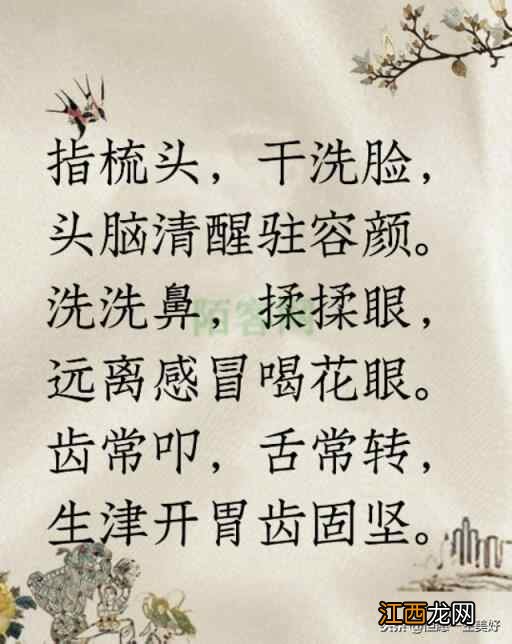 指梳头，干洗脸，
头脑清醒驻容颜。
洗洗鼻，揉揉眼，
远离感冒喝花眼。
齿常叩，舌常转，
生津开胃齿固坚。
陌客网
江西龙网